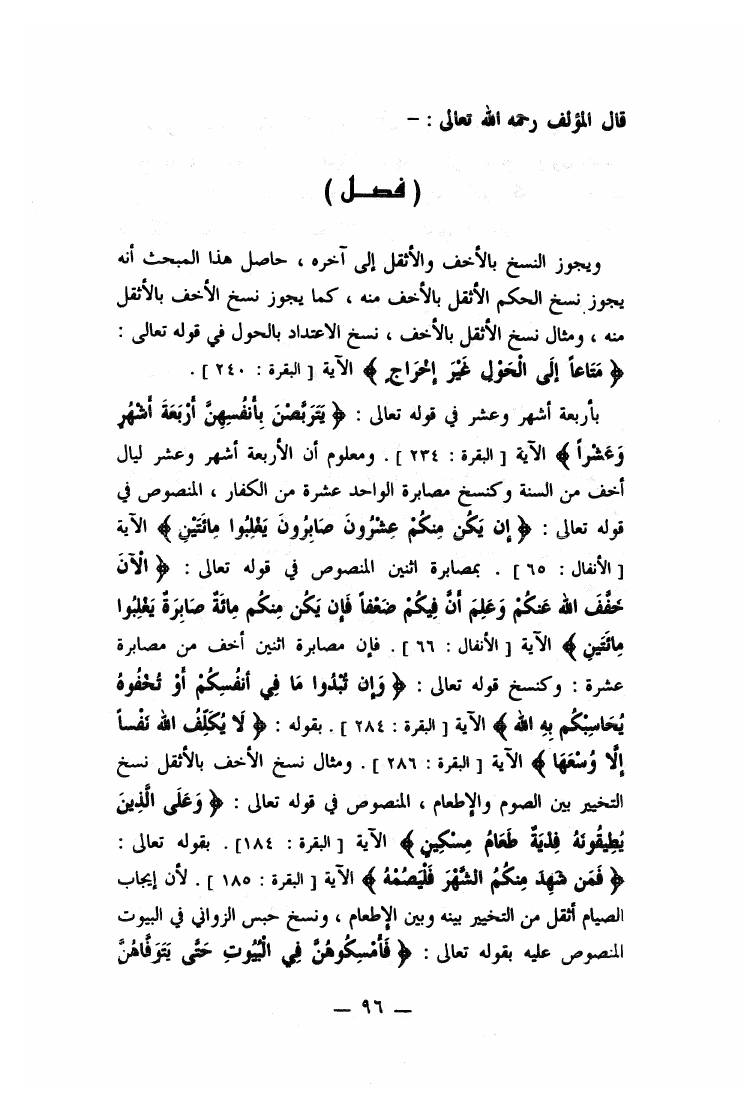 قال المؤلف رحمه الله تعالى : –
( فصـــل )
ويجوز النسخ بالأخف والأثقل إلى آخره ، حاصل هذا المبحث أنه
يجوز نسخ الحكم الأثقل بالأخف منه ، كما يجوز نسخ الأخف بالأثقل
منه ، ومثال نسخ الأثقل بالأخف ، نسخ الاعتداد بالحول في قوله تعالى :
﴿ مَتَاعاً إِلَى الْحَوْلِ غَيْرَ إِخْرَاجٍ ﴾ الآية [ البقرة : ٢٤٠ ] .
بأربعة أشهر وعشر في قوله تعالى : ﴿ يَتَرَبَّصْنَ بِأَنفُسِهِنَّ أَرْبَعَةَ أَشْهُرٍ
وَعَشْراً ﴾ الآية [ البقرة : ٢٣٤ ] . ومعلوم أن الأربعة أشهر وعشر ليال
أخف من السنة وكنسخ مصابرة الواحد عشرة من الكفار ، المنصوص في
قوله تعالى : ﴿ إِن يَكُن مِنكُمْ عِشْرُونَ صَابِرُونَ يَغْلِبُوا مِائَتَيْنِ ﴾ الآية
[ الأنفال : ٦٥ ] . بمصابرة اثنين المنصوص في قوله تعالى : ﴿ الْآنَ
خَفَّفَ الله عَنكُمْ وَعَلِمَ أَنَّ فِيكُمْ ضَعْفاً فَإِن يَكُن مِنكُم مِائَةٌ صَابِرَةٌ يَغْلِبُوا
مِائَتَينِ ﴾ الآية [ الأنفال : ٦٦ ] . فإن مصابرة اثنين أخف من مصابرة
عشرة : وكنسخ قوله تعالى : ﴿ وَإِن تُبْدُوا مَا فِي أَنفُسِكُمْ أَوْ تُخْفُوهُ
يُحَاسِبْكُم بِهِ الله ﴾ الآية [ البقرة : ٢٨٤ ] . بقوله : ﴿ لَا يُكَلِّفُ الله نَفْساً
إِلَّا وُسْعَهَا ﴾ الآية [ البقرة : ٢٨٦ ] . ومثال نسخ الأخف بالأثقل نسخ
التخيير بين الصوم والإطعام ، المنصوص في قوله تعالى : ﴿ وَعَلَى الَّذِينَ
يُطِيقُونَهُ فِدْيَةٌ طَعَامُ مِسْكِينٍ ﴾ الآية [ البقرة : ١٨٤] . بقوله تعالى :
﴿ فَمَن شَهِدَ مِنكُمُ الشَّهْرَ فَلْيَصُمْهُ ﴾ الآية [ البقرة : ١٨٥ ] . لأن إيجاب
الصيام أثقل من التخيير بينه وبين الإطعام ، ونسخ حبس الزواني في البيوت
المنصوص عليه بقوله تعالى : ﴿ فَأَمْسِكُوهُنَّ فِي الْبُيُوتِ حَتَّى يَتَوَفَّاهُنَّ
— ٩٦ —